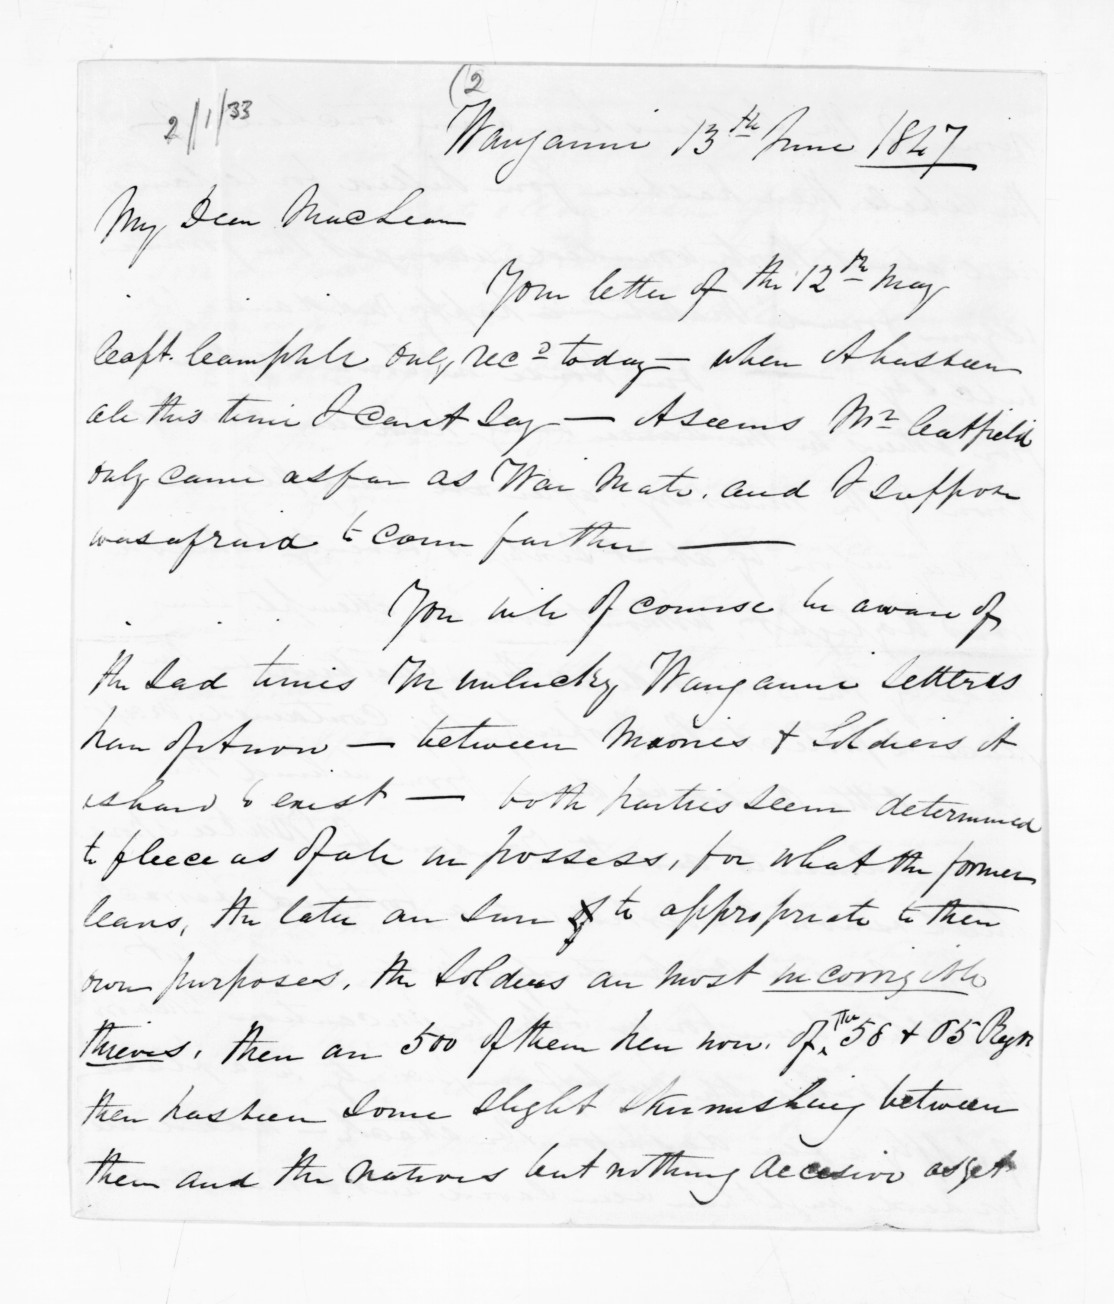 2/1/33
(2
Wanganui 13th June 1847
My Dear MacLean
Your letter of the 12th May
Capt. Campbell only recd today — when it has been
all this time I cant say — It seems Mr Catfield
only came as far as Wai Mate. and I suppose
was afraid to come further —
You will of course be aware of
the sad times the unlucky Wanganui Settlers
have of it now — between Maories & Soldiers it
is hard to exist — both parties seem determined
to fleece us of all we possess, for what the former
leave, the later are sure to appropriate to their
own purposes. the Soldiers are most incorrigible
thieves. there are 500 of them here now. of the 58 & 65 Regts
there has been some slight skirmishing between
them and the natives but nothing decesive as yet